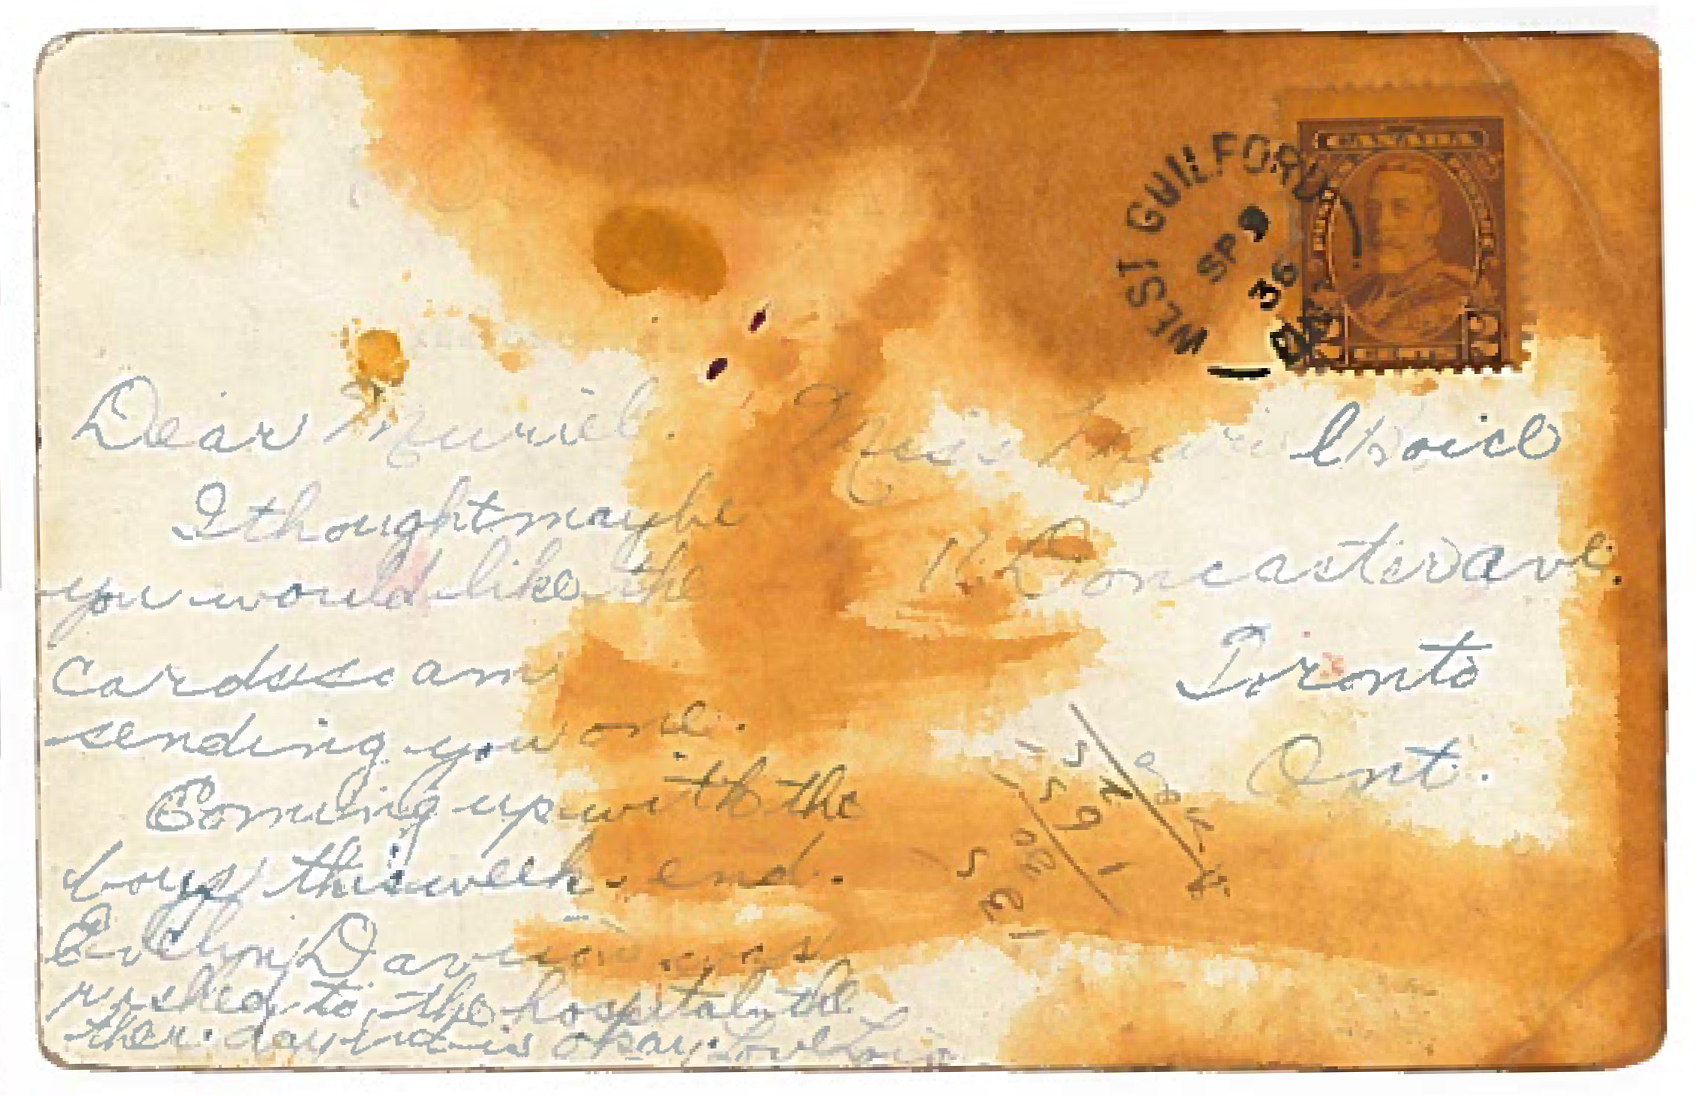 WEST GUILFORD
SP 9
36
ONT
CANADA
2 CENTS 2
Dear Muriel.
I thought maybe
you would like the
card so am
sending you one.
Coming up with the
boys this week-end.
Evelyn was
rushed to the hospital the
ther day and is okay. Love Lois
Miss Muriel
Doncaster ave.
Toronto
Ont.